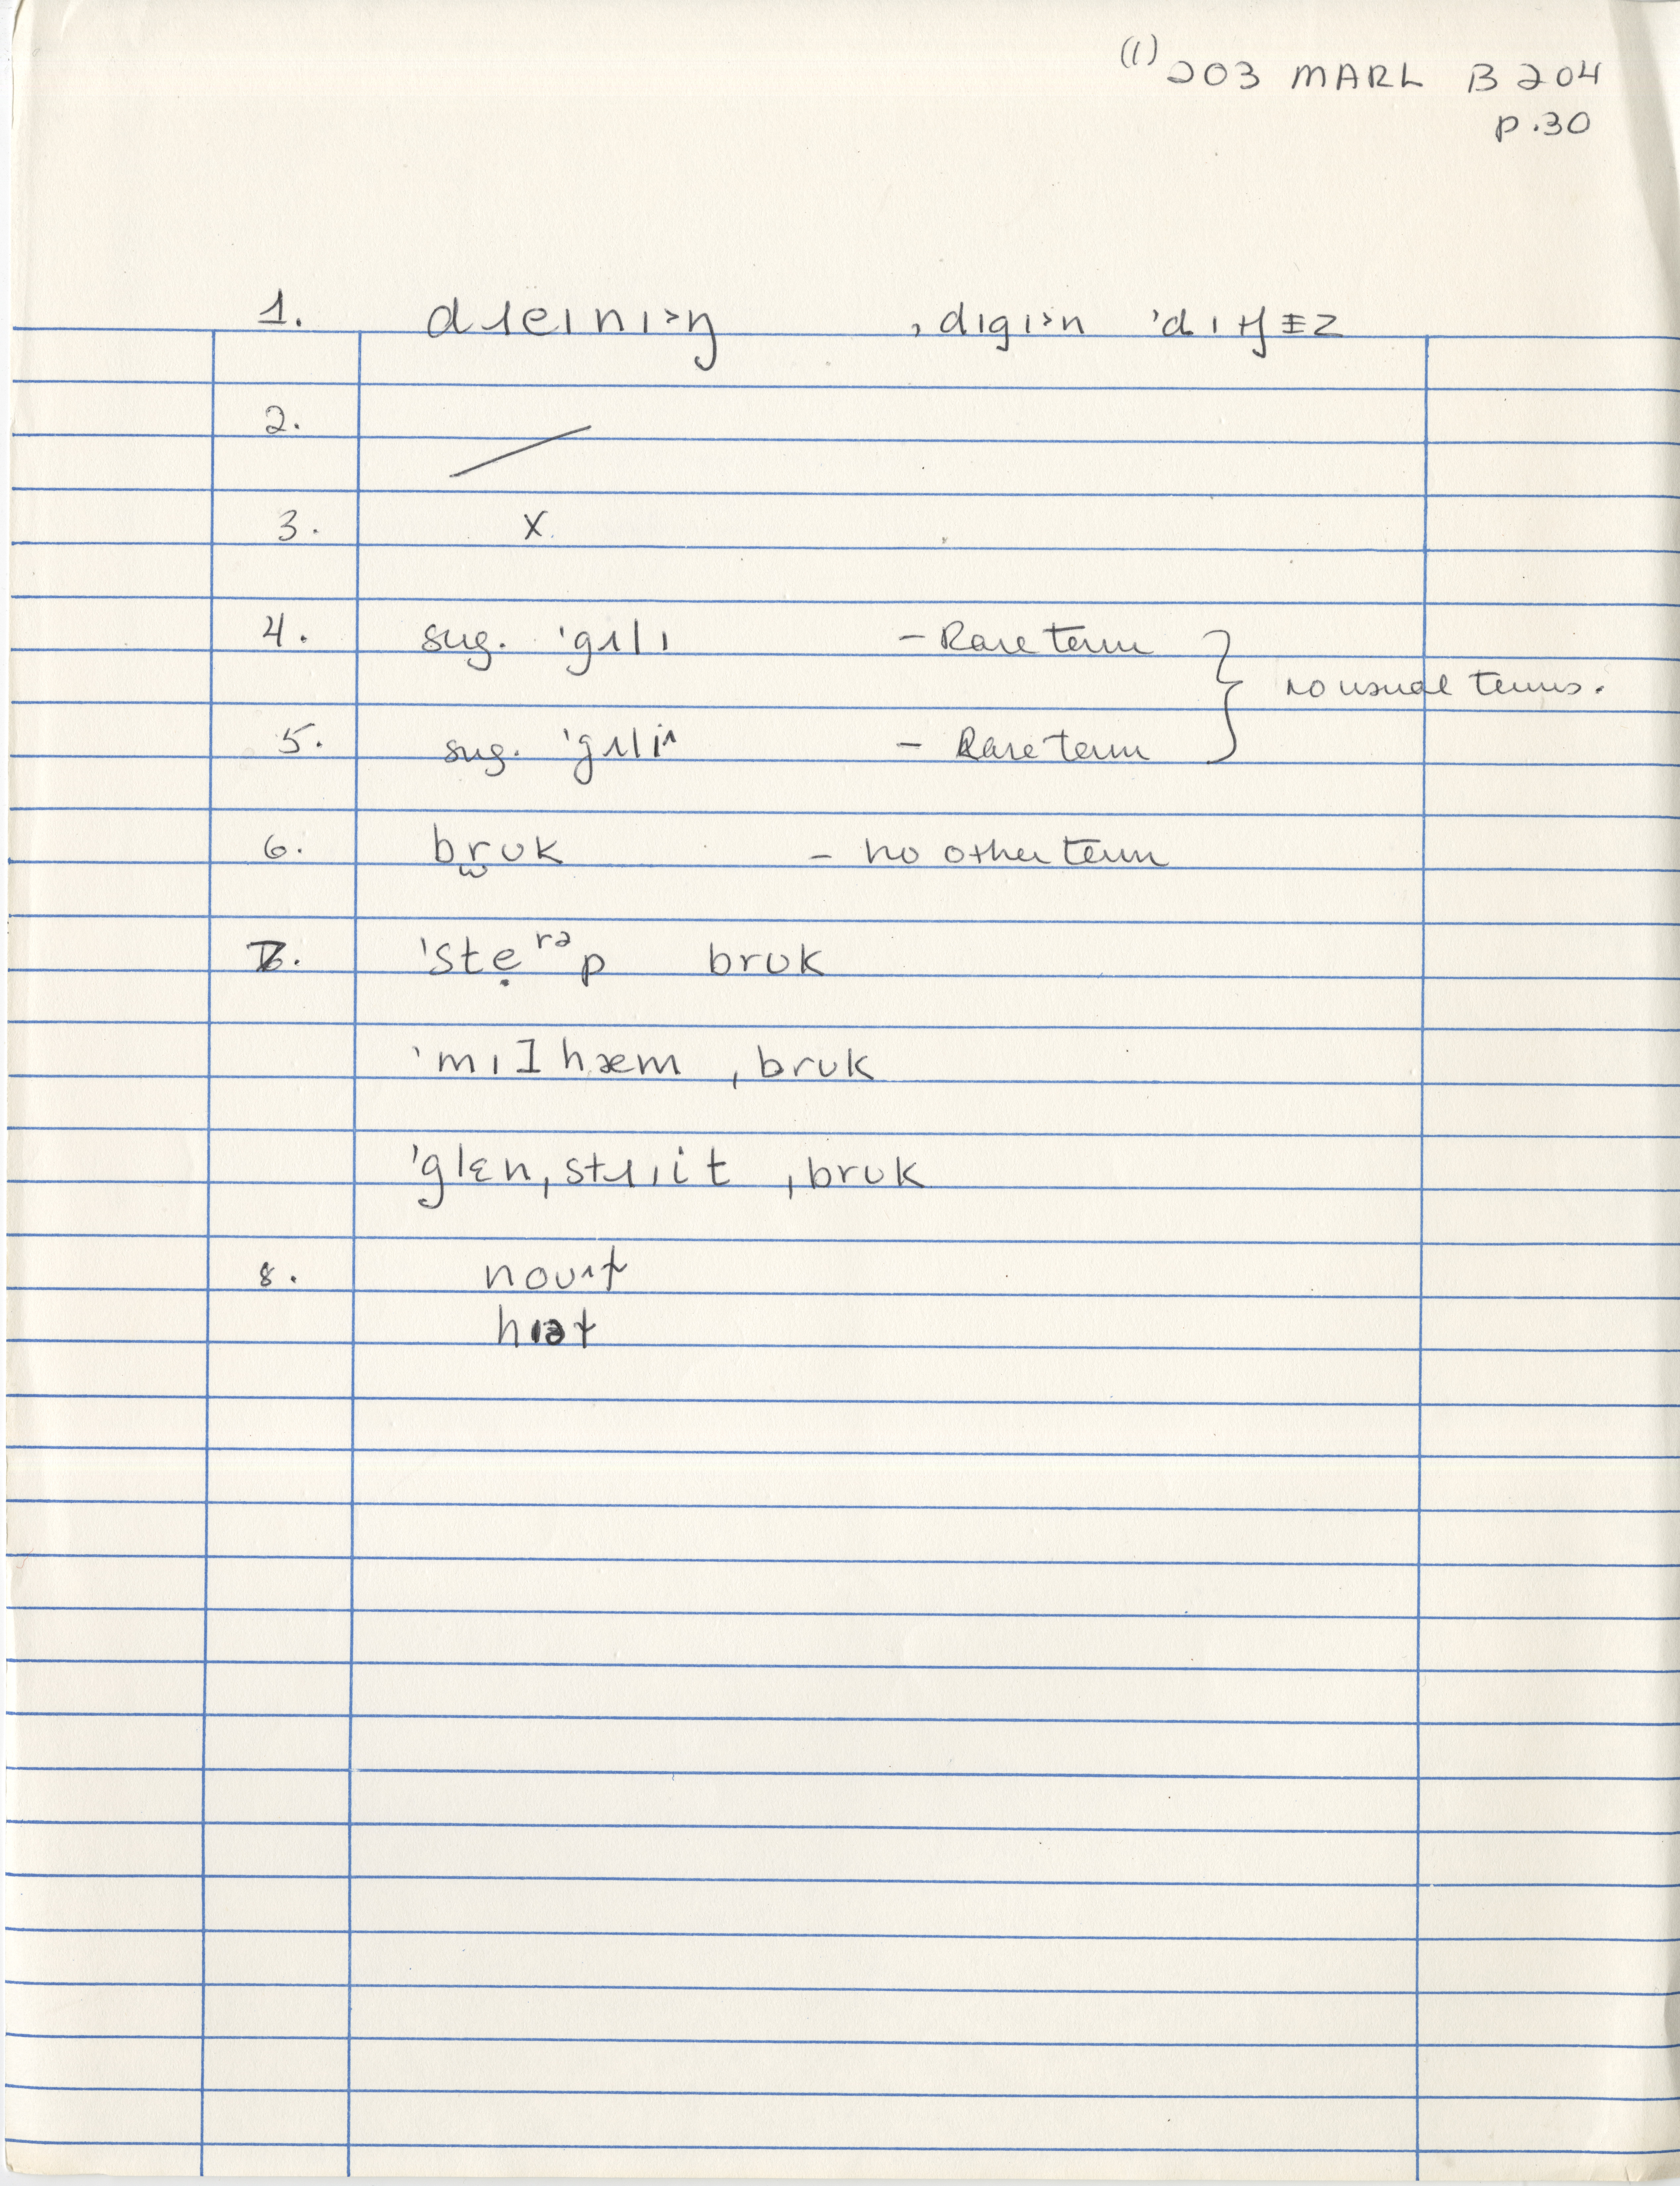 (1) 203 MARL B 204
p.30
1. dɹeɪnɪ˃ŋ ˌdɪgɪ˃n ˈdɪtʃɪz
2. /
3. X
4. sug. ˈgʌlɪ – Rare term
no usual terms.
5. sug. ˈgʌli^ – Rare term
6. br̫ʊk – no other term
7. ˈstẹʳᵊp brʊk
ˈmɪlhæm ˌbrʊk
ˈglɛnˌstɹiit ˌbrʊk
8. noʊ^t
hɪət